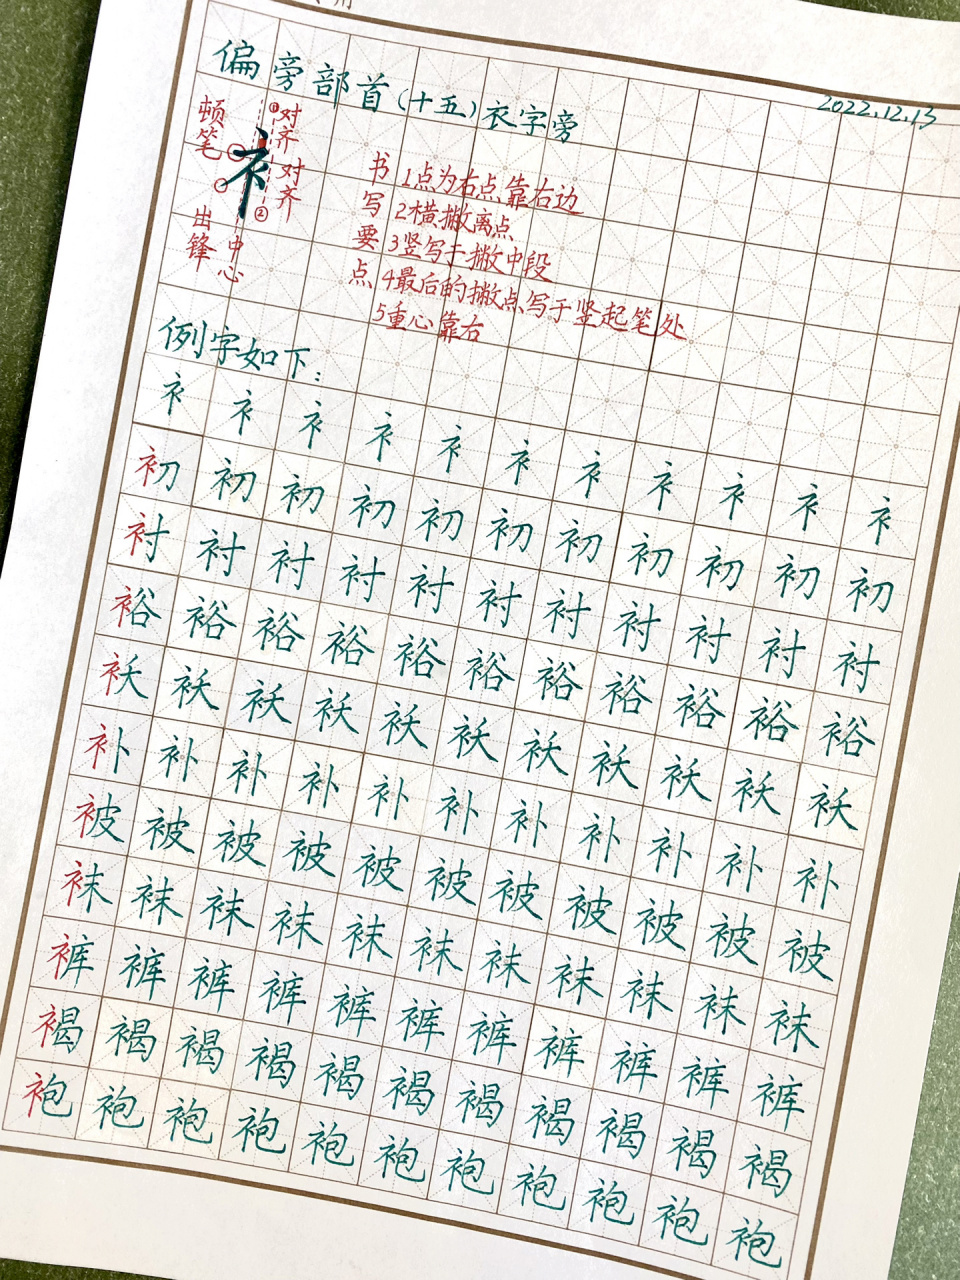 用
偏旁部首(十五)衣字旁
2022.12.13
顿笔
①对齐
对齐
衤
②
出锋
中心
书写要点
1点为右点靠右边
2横撇离点
3竖写于撇中段
4最后的撇点写于竖起笔处
5重心靠右
例字如下:
衤衤衤衤衤衤衤衤衤衤衤
初初初初初初初初初初初
衬衬衬衬衬衬衬衬衬衬衬
裕裕裕裕裕裕裕裕裕裕裕
袄袄袄袄袄袄袄袄袄袄袄
补补补补补补补补补补补
被被被被被被被被被被被
袜袜袜袜袜袜袜袜袜袜袜
裤裤裤裤裤裤裤裤裤裤裤
褐褐褐褐褐褐褐褐褐褐褐
袍袍袍袍袍袍袍袍袍袍袍